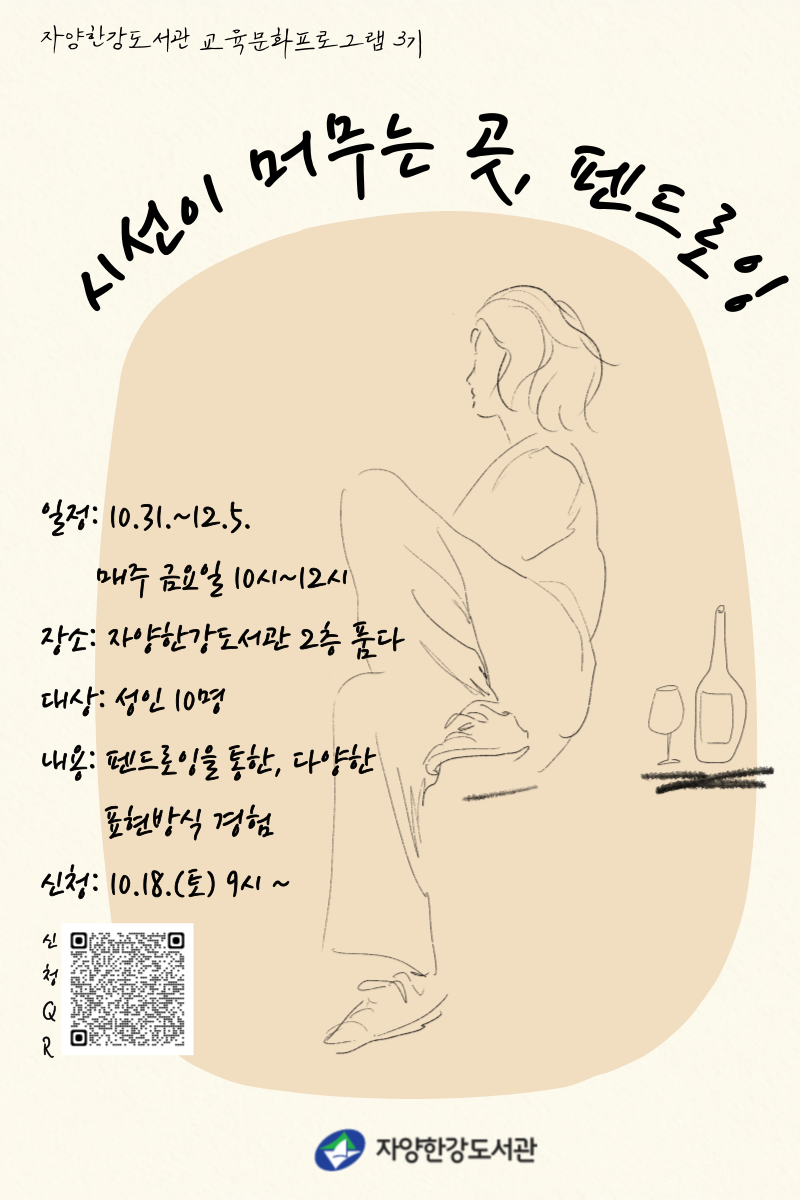 자양한강도서관 교육문화프로그램 3기
시선이 머무는 곳, 펜드로잉
일정: 10.31.~12.5.
매주 금요일 10시~12시
장소: 자양한강도서관 2층 품다
대상: 성인 10명
내용: 펜드로잉을 통한, 다양한
표현방식 경험
신청: 10.18.(토) 9시 ~
신청QR
자양한강도서관